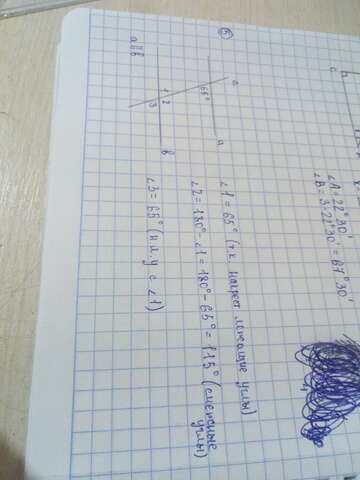 ∠A = 22°30'
∠B = 3·22°30' = 67°30'
5
a || b
c
65°
1
2
3
a
b
∠1 = 65° (т.к. накрест лежащие углы)
∠2 = 180° - ∠1 = 180° - 65° = 115° (смежные
углы)
∠3 = 65° (н.л.у с ∠1)